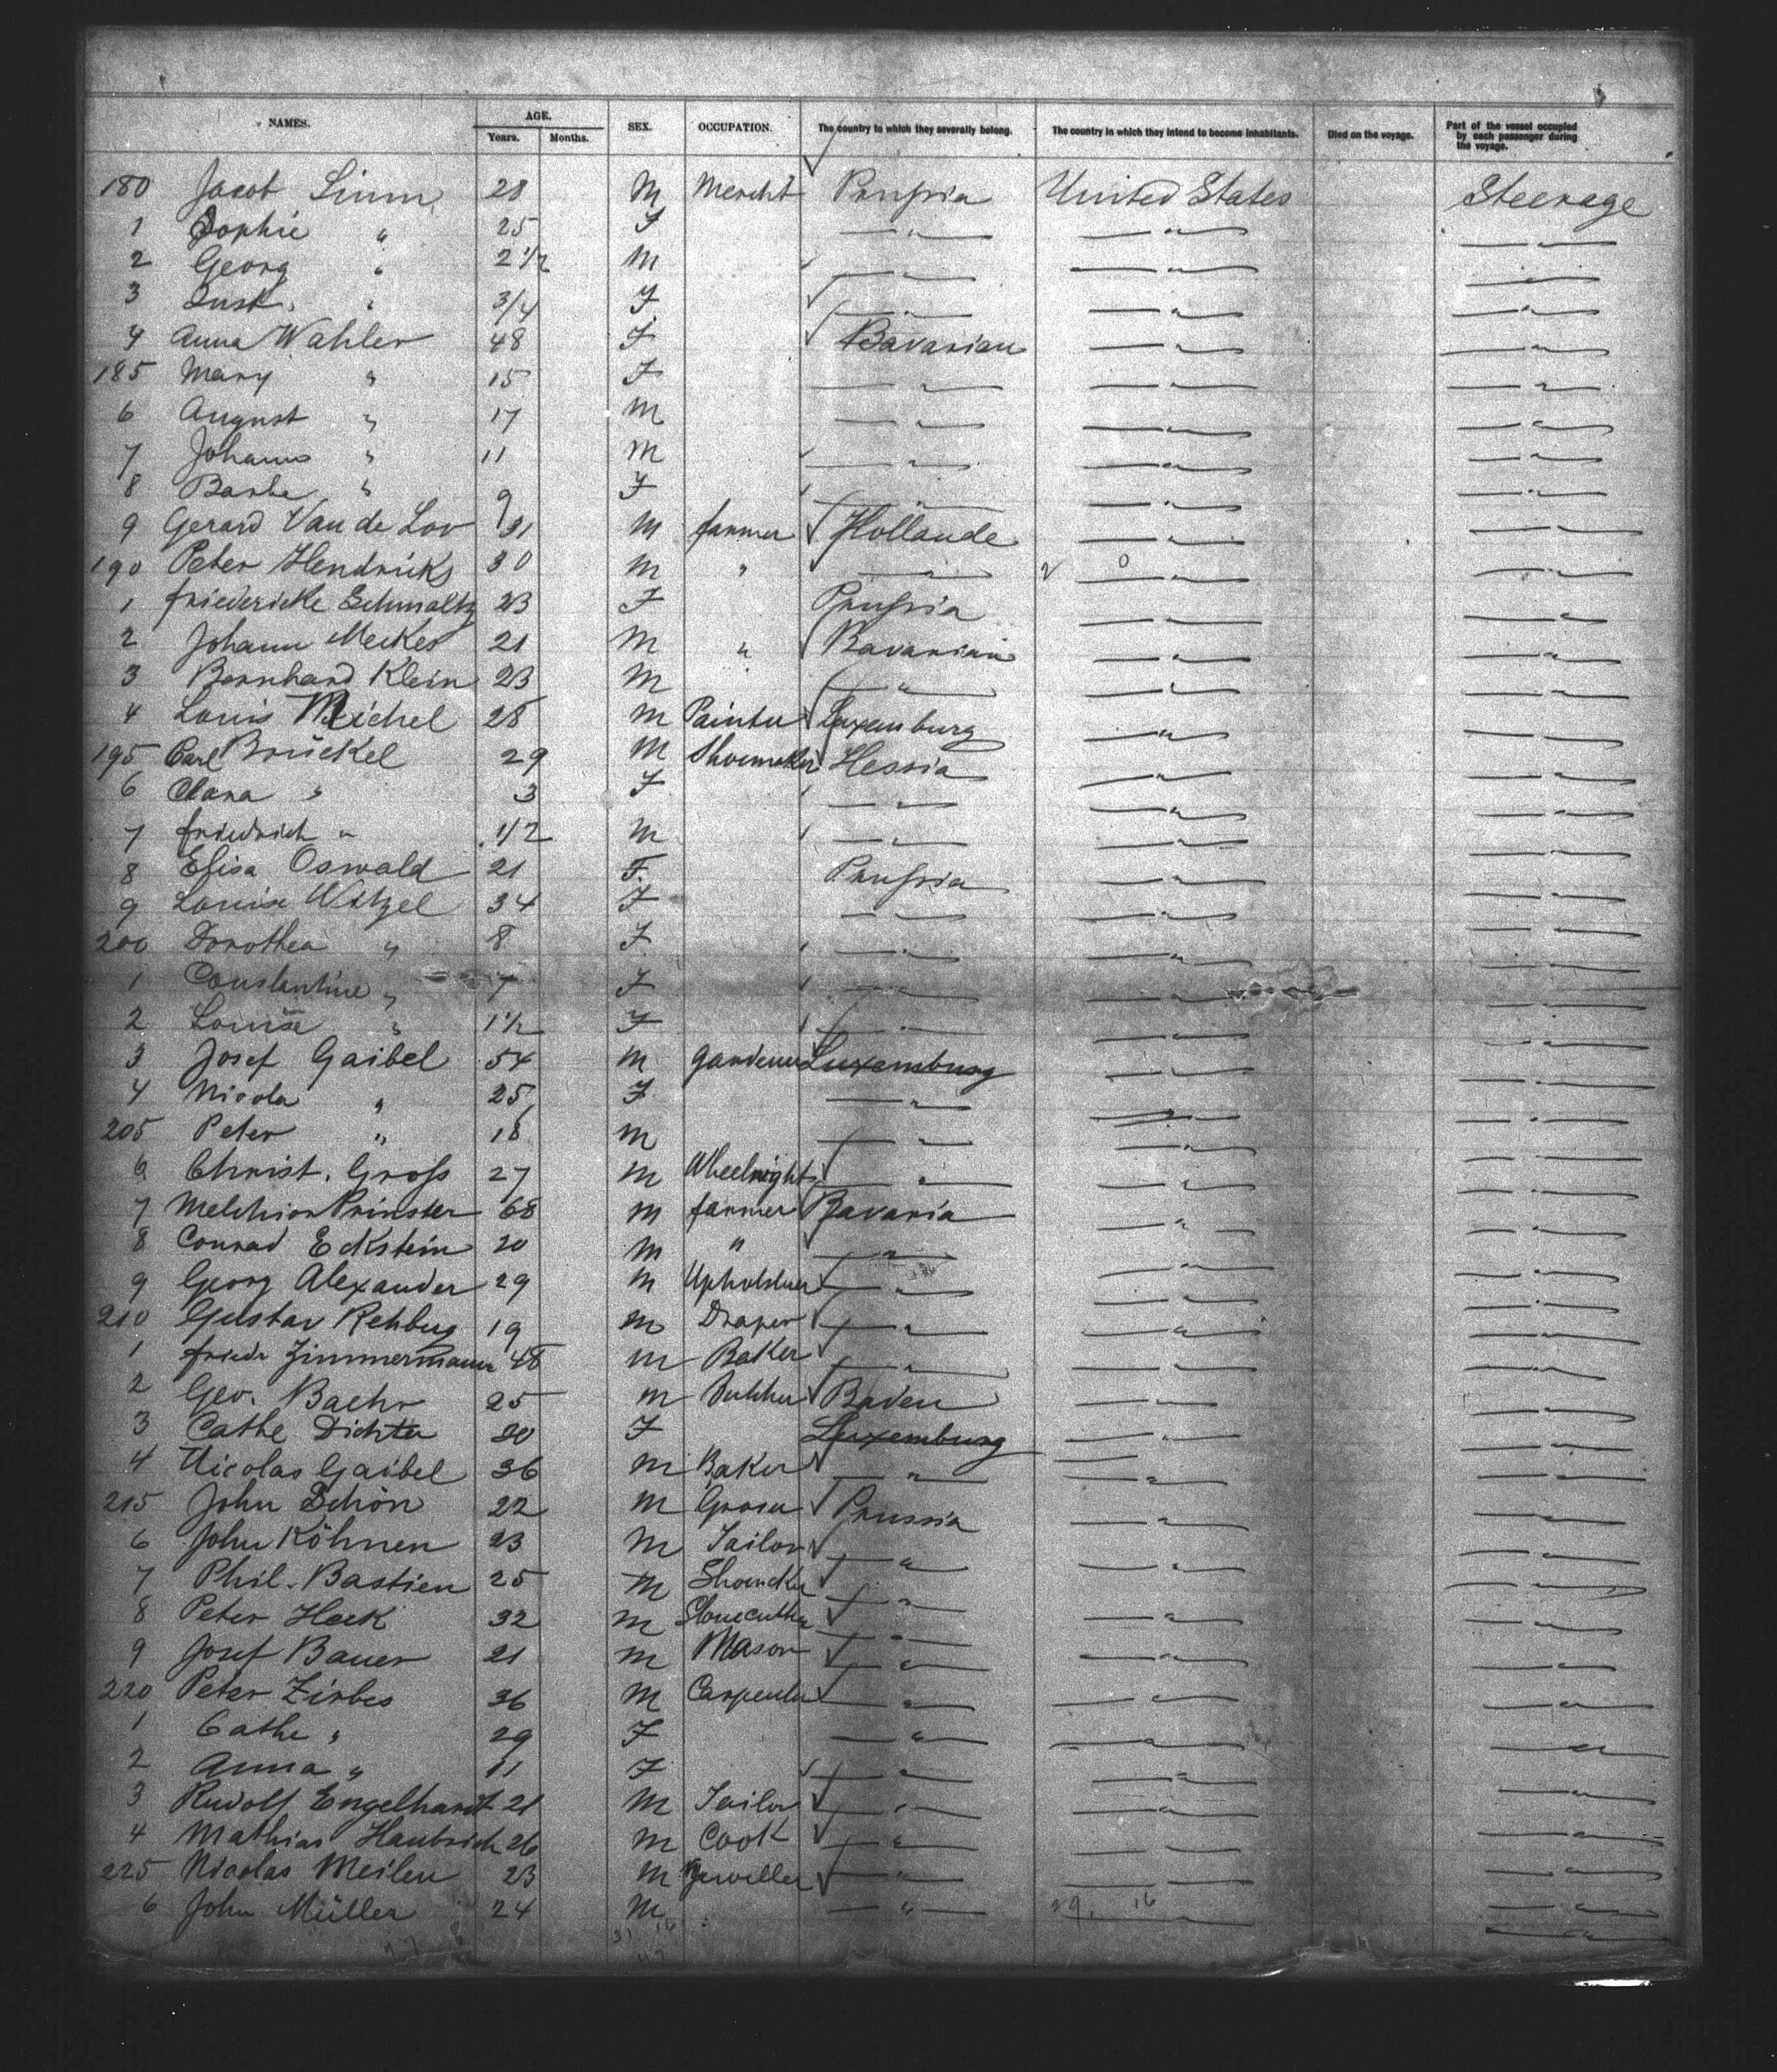 NAMES. AGE. Years. Months. SEX. OCCUPATION. The country to which they severally belong. The country in which they intend to become inhabitants. Died on the voyage. Part of the vessel occupied by each passenger during the voyage.
180 Jacob Simm 28 M Mercht Prussia United States Steerage
1 Sophie " 25 F — " — — " — — " —
2 Georg " 2 1/2 M — " — — " — — " —
3 " 3/4 F — " — — " — — " —
4 Anna Wahler 48 F Bavarian — " — — " —
185 Mary " 15 F — " — — " — — " —
6 August " 17 M — " — — " — — " —
7 Johann " 11 M — " — — " — — " —
8 Barbe " 9 F — " — — " — — " —
9 Gerard Van de Lov 31 M farmer Hollande — " — — " —
190 Peter Hendricks 30 M " — " — — " — — " —
1 Friedericke Schmaltz 23 F Prussia — " — — " —
2 Johann Meckes 21 M " Bavarian — " — — " —
3 Bernhard Klein 23 M — " — — " — — " —
4 Louis Michel 28 M Painter Luxemburg — " — — " —
195 Carl Brückel 29 M Shoemaker Hessia — " — — " —
6 Clara " 3 F — " — — " — — " —
7 Friedrich " 1/2 M — " — — " — — " —
8 Elisa Oswald 21 F. Prussia — " — — " —
9 Louise Witzel 34 F — " — — " — — " —
200 Dorothea " 8 F — " — — " — — " —
1 Constantine " 7 F — " — — " — — " —
2 Louise " 1 1/2 F — " — — " — — " —
3 Josef Gaibel 54 M Gardener Luxemburg — " — — " —
4 Nicola " 25 F — " — — " — — " —
205 Peter " 18 M — " — — " — — " —
6 Christ. Gross 27 M Wheelwright — " — — " — — " —
7 Melchior Prinster 68 M farmer Bavaria — " — — " —
8 Conrad Eckstein 20 M " — " — — " — — " —
9 Georg Alexander 29 M Upholsterer — " — — " — — " —
210 Gustav Rehberg 19 M Draper — " — — " — — " —
1 Friedr Zimmermann 48 M Baker — " — — " — — " —
2 Geo. Baehr 25 M Butcher Baden — " — — " —
3 Cathe Dichter 20 F Luxemburg — " — — " —
4 Nicolas Gaibel 36 M Baker — " — — " — — " —
215 John Schön 22 M Grocer Prussia — " — — " —
6 John Köhnen 23 M Tailor — " — — " — — " —
7 Phil. Bastien 25 M Shoemaker — " — — " — — " —
8 Peter Heck 32 M Stonecutter — " — — " — — " —
9 Josef Bauer 21 M Mason — " — — " — — " —
220 Peter Zirbes 36 M Carpenter — " — — " — — " —
1 Cathe " 29 F — " — — " — — " —
2 Anna " 11 F — " — — " — — " —
3 Rudolf Engelhardt 21 M Tailor — " — — " — — " —
4 Mathias Haubrich 26 M Cook — " — — " — — " —
225 Nicolas Meilen 23 M Jeweller — " — — " — — " —
6 John Müller 24 M — " — — " — — " —
29. 16
31 16
47